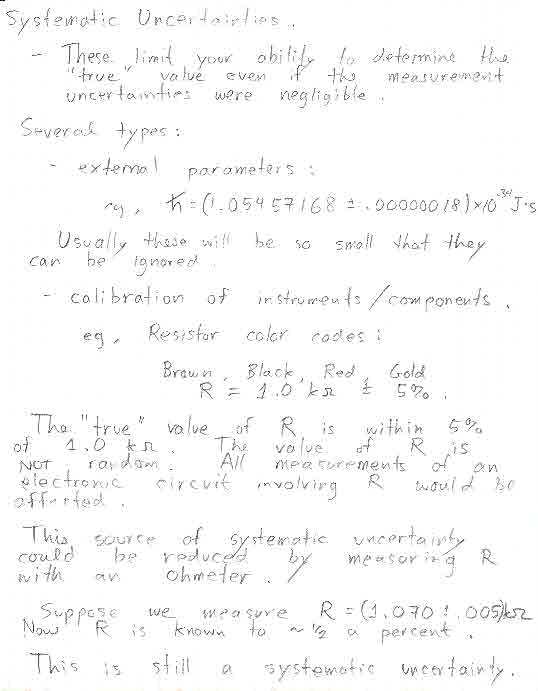 Systematic Uncertainties.
- These limit your ability to determine the
"true" value even if the measurement
uncertainties were negligible.
Several types:
- external parameters:
eg, ħ = (1.05457168 ± .00000018)×10⁻³⁴ J·s
Usually these will be so small that they
can be ignored.
- calibration of instruments/components.
eg, Resistor color codes:
Brown, Black, Red, Gold
R = 1.0 kΩ ± 5%.
The "true" value of R is within 5%
of 1.0 kΩ. The value of R is
NOT random. All measurements of an
electronic circuit involving R would be
affected.
This source of systematic uncertainty
could be reduced by measuring R
with an ohmeter.
Suppose we measure R = (1.070 ± .005)kΩ
Now R is known to ~ ½ a percent.
This is still a systematic uncertainty.